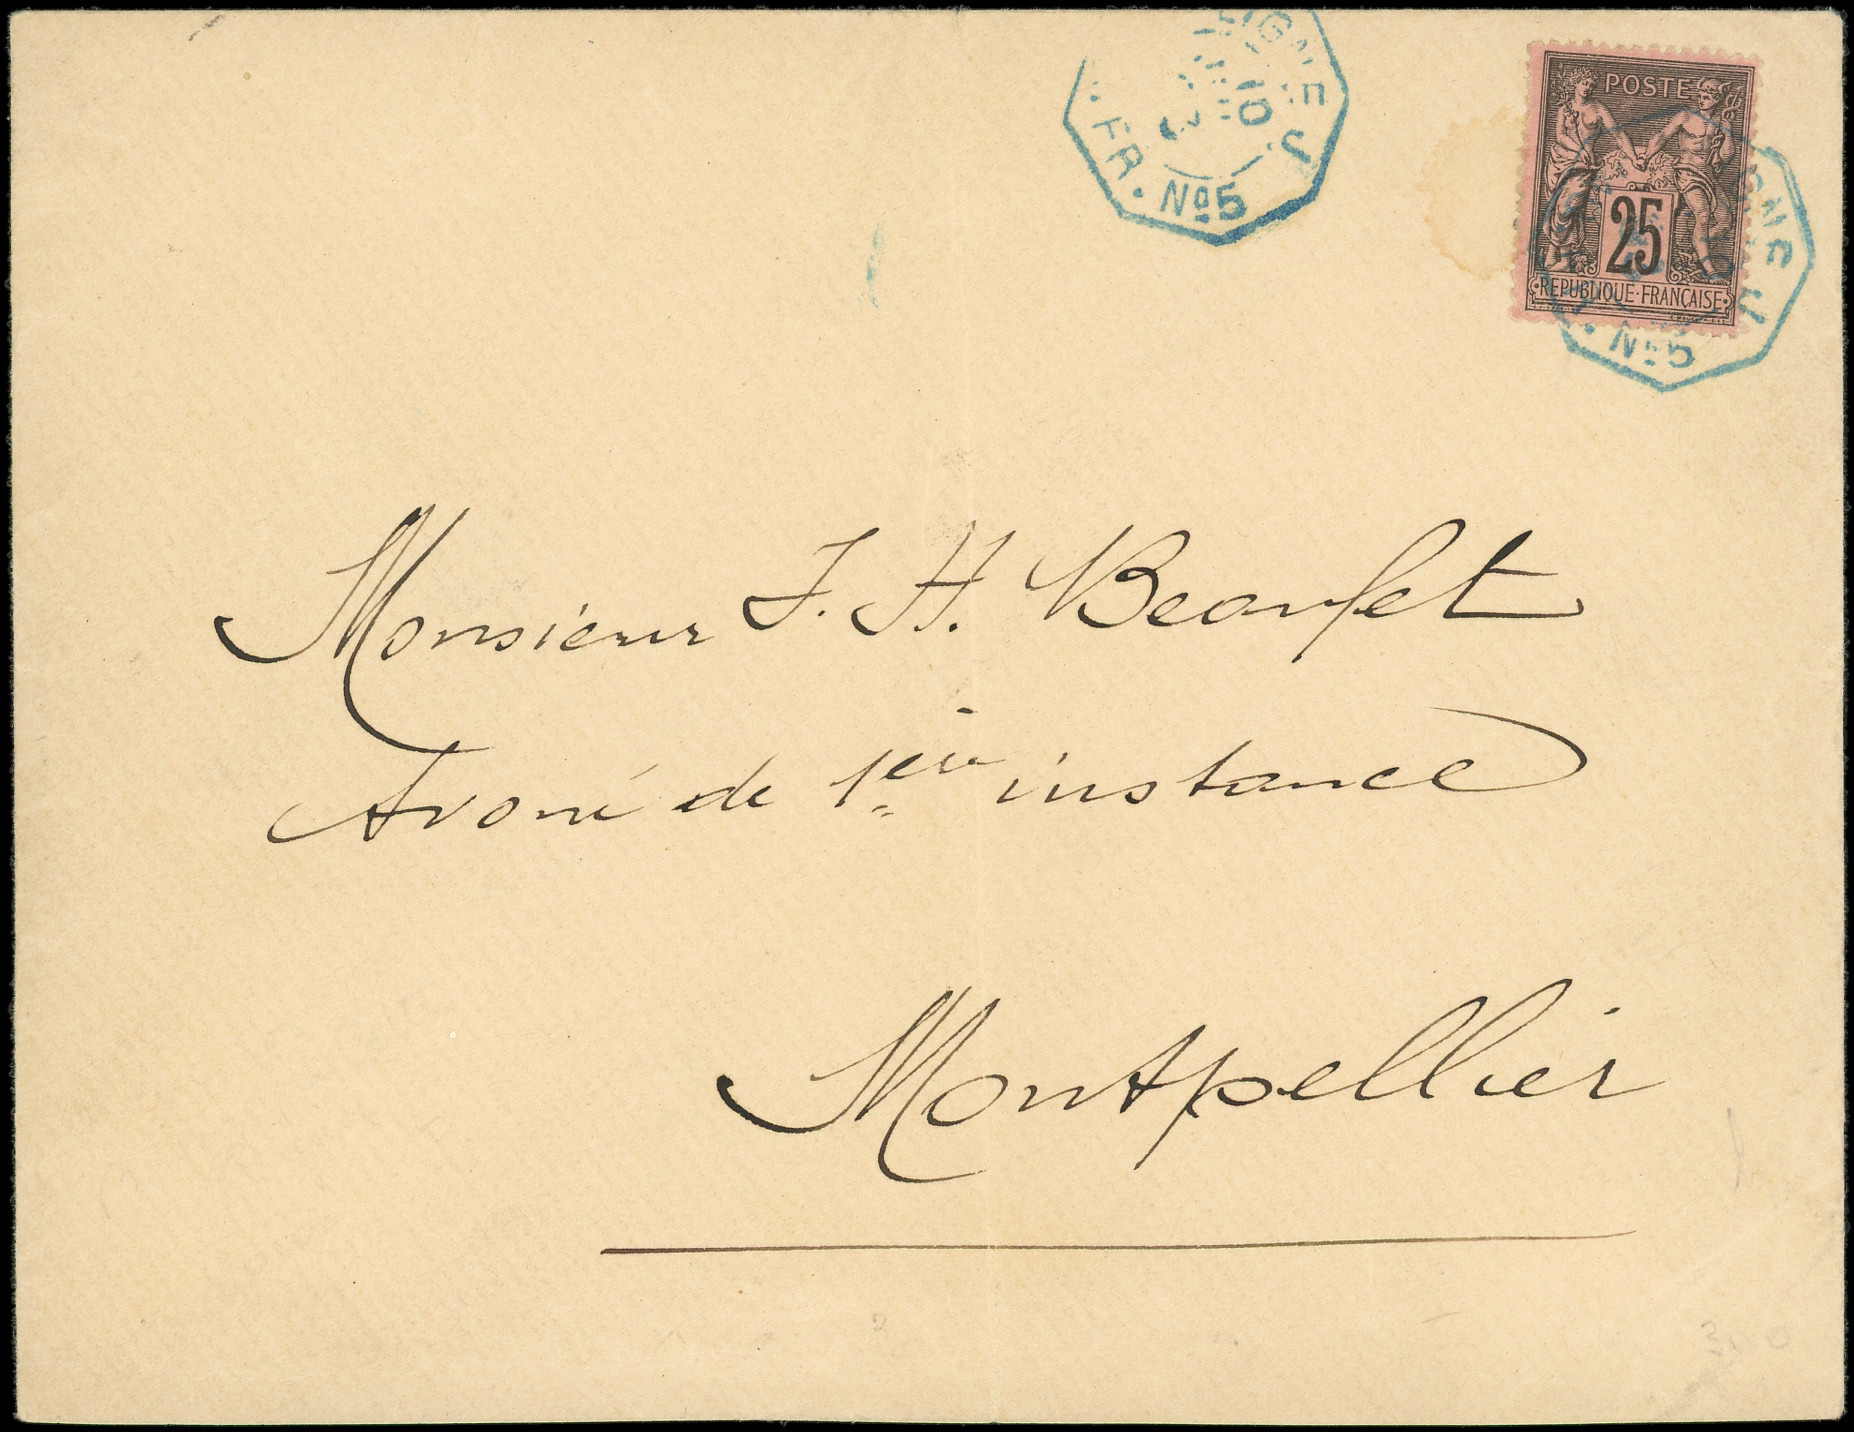 LIGNE J
10
FR. No5
POSTE
25
REPUBLIQUE FRANÇAISE
IGNE J
No5
Monsieur J. H. Beaufet
Avoué de 1ère instance
Montpellier